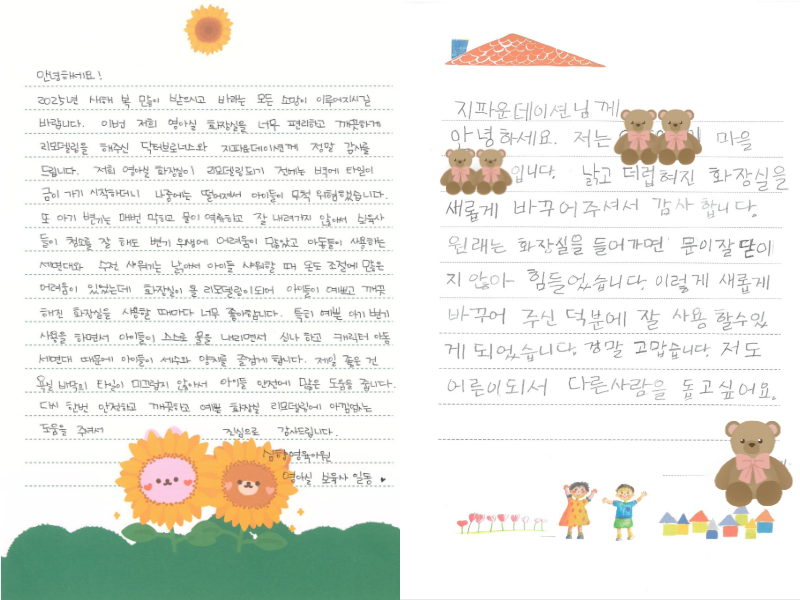 안녕하세요!
2025년 새해 복 많이 받으시고 바라는 모든 소망이 이루어지시길
바랍니다. 이번 저희 영아실 화장실을 너무 편리하고 깨끗하게
리모델링을 해주신 닥터브로너스와 지파운데이션께 정말 감사를
드립니다. 저희 영아실 화장실이 리모델링되기 전에는 벽에 타일이
금이 가기 시작하더니 나중에는 떨어져서 아이들이 무척 위험했습니다.
또 아기 변기는 매번 막히고 물이 역류하고 잘 내려가지 않아서 보육사
들이 청소를 잘 해도 변기 위생에 어려움이 많았고 아동들이 사용하는
세면대와 수전 샤워기는 낡아서 아이들 샤워할 때 온도 조절에 많은
어려움이 있었는데 화장실이 올 리모델링이 되어 아이들이 예쁘고 깨끗
해진 화장실을 사용할 때마다 너무 좋아합니다. 특히 예쁜 아기 변기
사용을 하면서 아이들이 스스로 물을 내리면서 신나 하고 캐릭터 아동
세면대 때문에 아이들이 세수와 양치를 즐겁게 합니다. 제일 좋은 건
욕실 바닥의 타일이 미끄럽지 않아서 아이들 안전에 많은 도움을 줍니다.
다시 한번 안전하고 깨끗하고 예쁜 화장실 리모델링에 아낌없는
도움을 주셔서 진심으로 감사드립니다.
영육아원
영아실 보육사 일동 ♥
지파운데이션님께
안녕하세요. 저는 마을
입니다. 낡고 더럽혀진 화장실을
새롭게 바꾸어주셔서 감사합니다.
원래는 화장실을 들어가면 문이잘 닫이
지 않아 힘들었습니다. 이렇게 새롭게
바꾸어 주신 덕분에 잘 사용 할수있
게 되었습니다. 정말 고맙습니다. 저도
어른이되서 다른사람을 돕고싶어요.